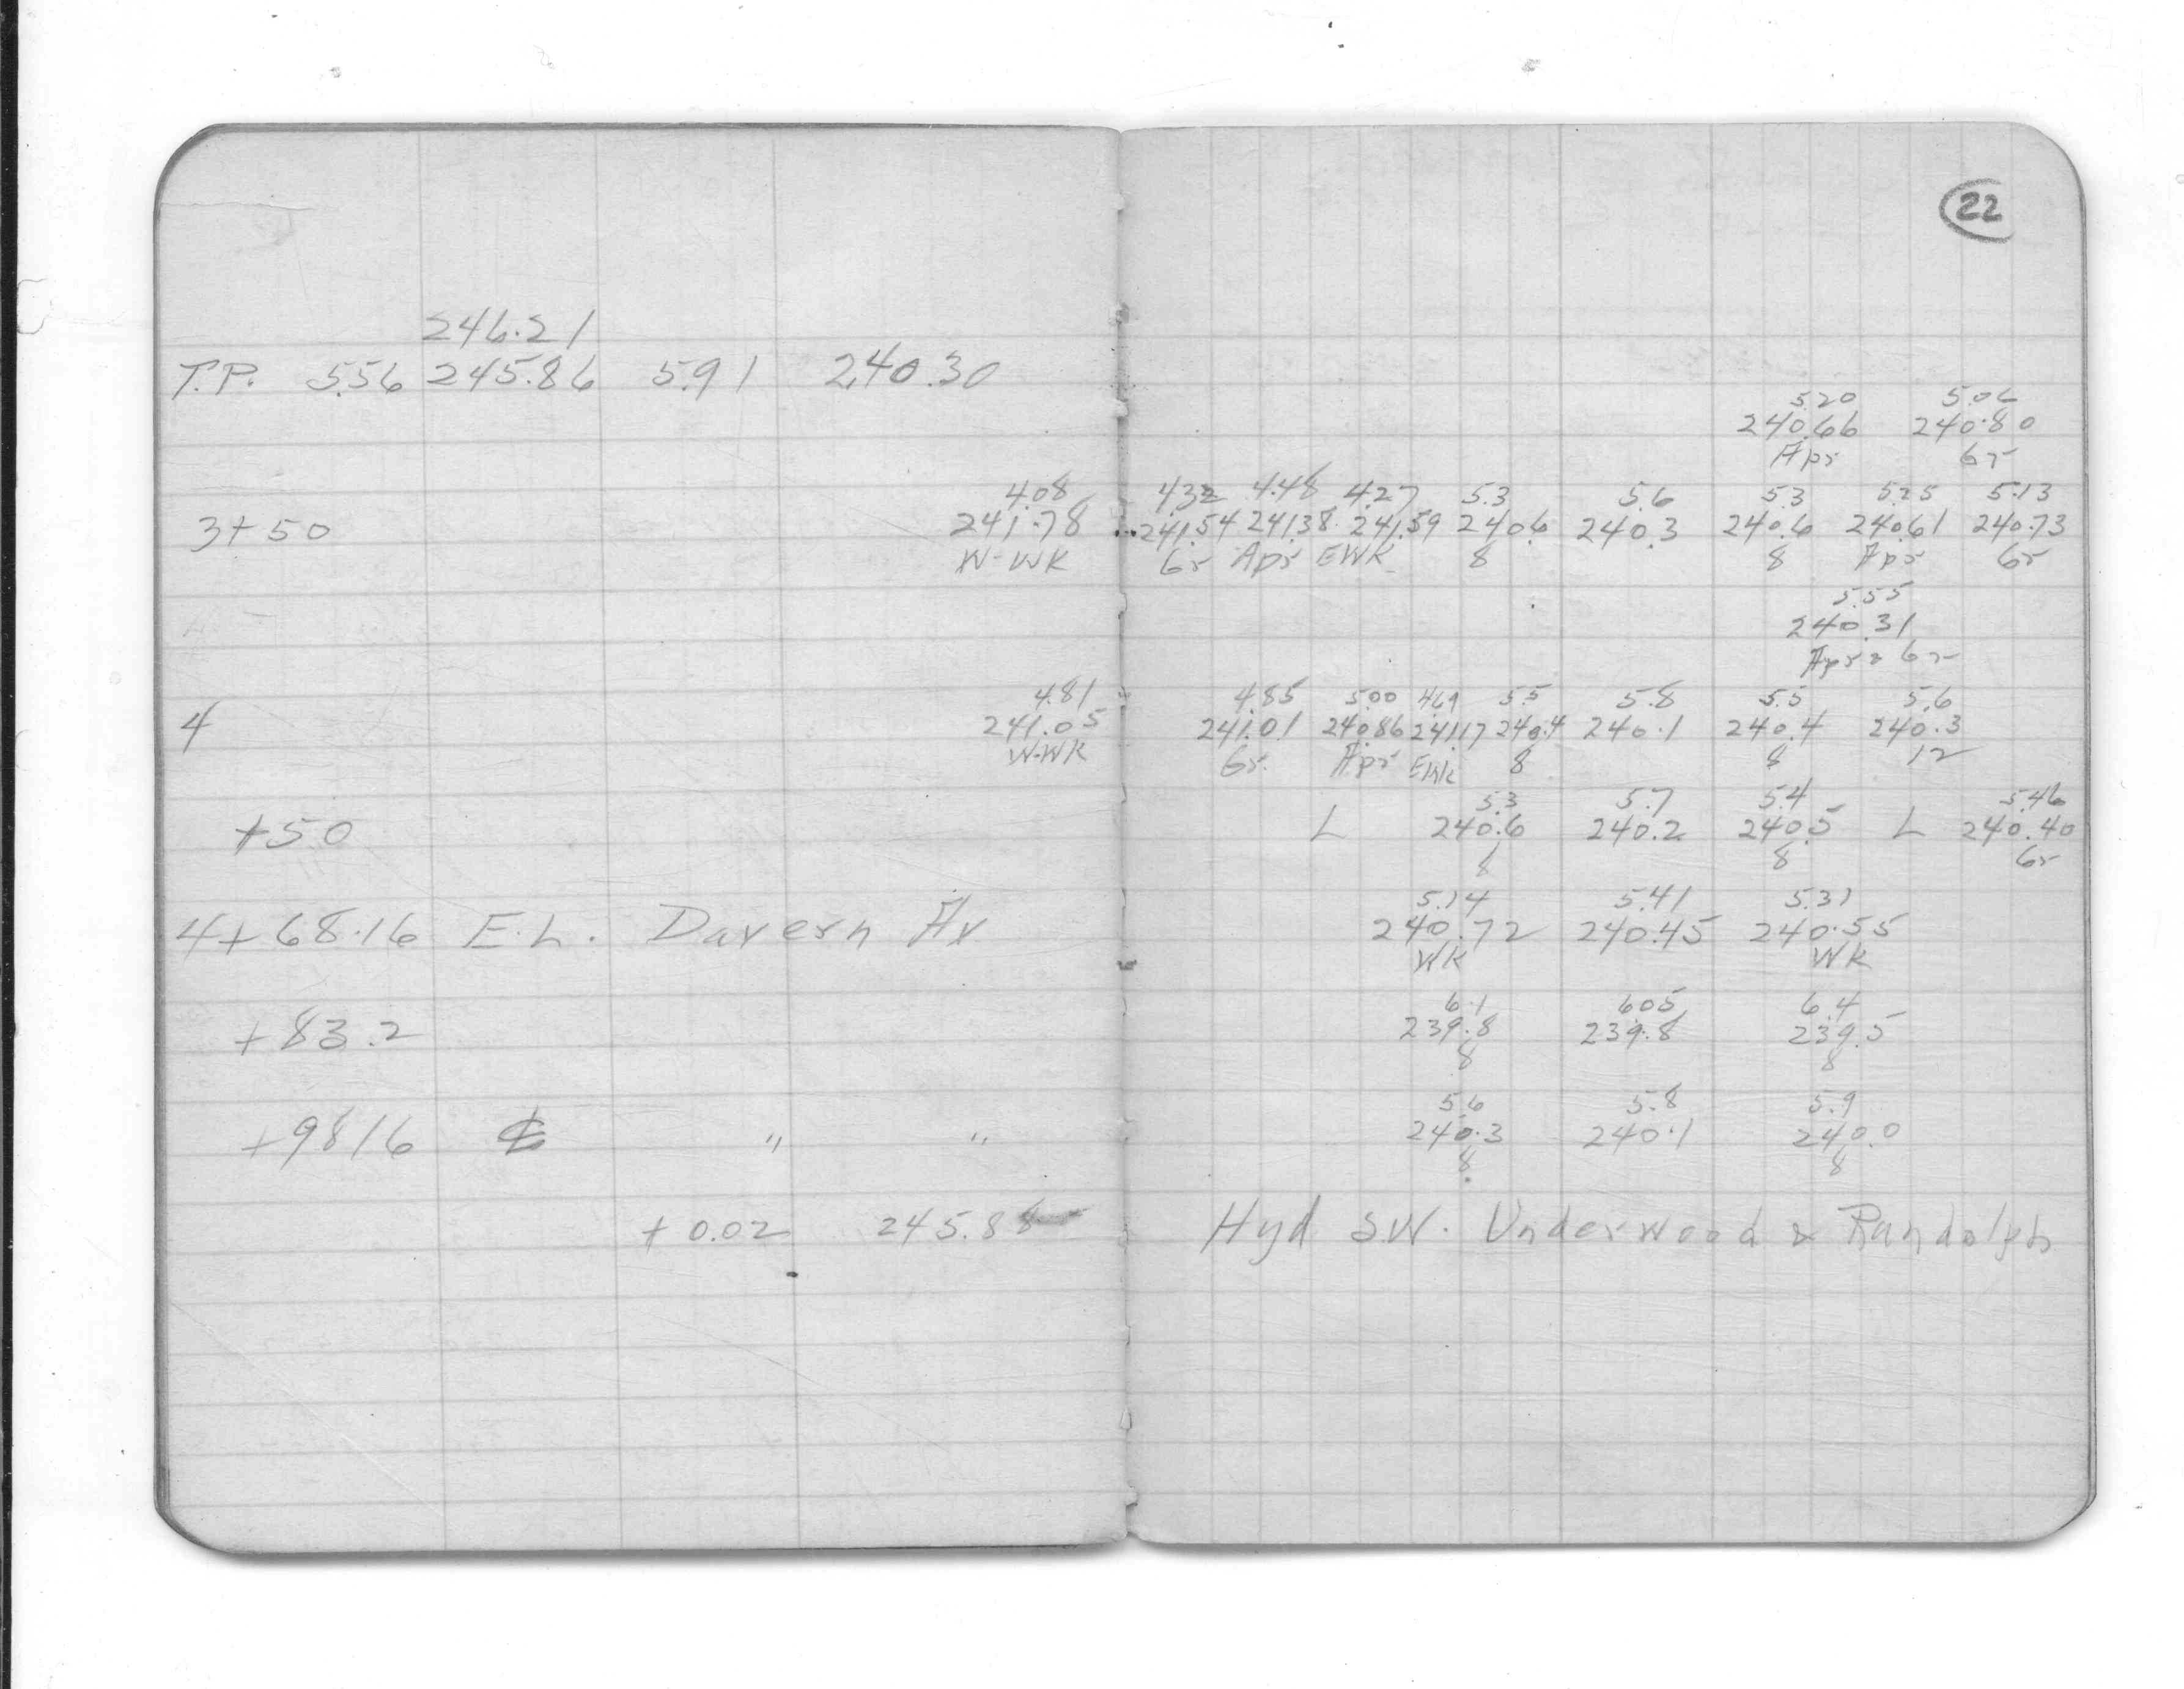 22
246.21
T.P. 5.56 245.86 5.91 240.30
5.20 5.06
240.66 240.80
Apr Gr
4.08 4.32 4.48 4.27 5.3 5.6 5.3 5.25 5.13
3+50 241.78 241.54 241.38 241.59 240.6 240.3 240.6 240.61 240.73
W-WK Gr Apr EWK 8 8 Apr Gr
5.55
240.31
Apr & Gr
4.81 4.85 5.00 4.69 5.5 5.8 5.5 5.6
4 241.05 241.01 240.86 241.17 240.4 240.1 240.4 240.3
W-WK Gr. Apr EWK 8 8 12
5.3 5.7 5.4 5.46
+50 L 240.6 240.2 240.5 L 240.40
8 8 Gr
5.14 5.41 5.31
4+68.16 E.L. Davern Av 240.72 240.45 240.55
WK WK
6.1 6.05 6.4
+83.2 239.8 239.8 239.5
8 8
5.6 5.8 5.9
+98.16 ℄ " " 240.3 240.1 240.0
8 8
+0.02 245.88 Hyd S.W. Underwood & Randolph